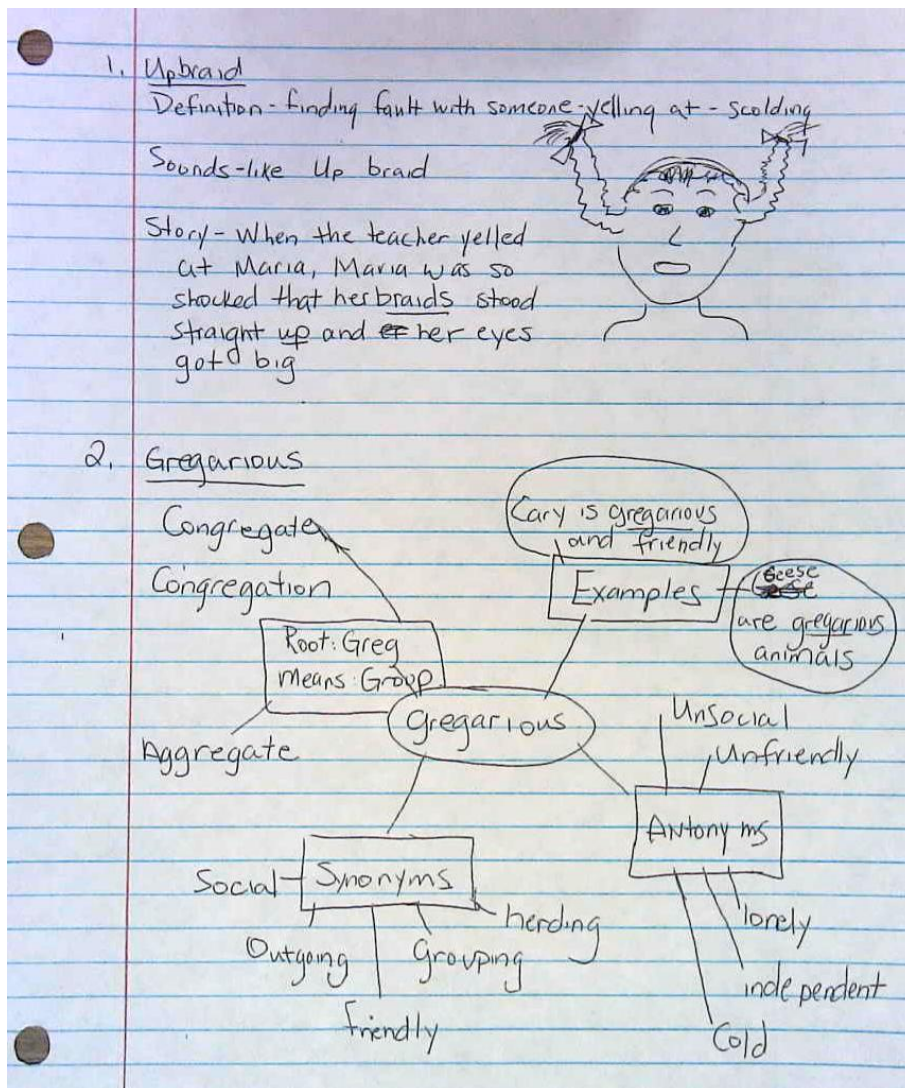 1. Upbraid
Definition - finding fault with someone - yelling at - scolding
Sounds-like Up braid
Story - When the teacher yelled
at Maria, Maria was so
shocked that her braids stood
straight up and her eyes
got big
2. Gregarious
Congregate
Congregation
Root: Greg
means: Group
Aggregate
Cary is gregarious
and friendly
Examples
Geese
are gregarious
animals
gregarious
Unsocial
Unfriendly
Antonyms
lonely
independent
Cold
Synonyms
Social
Outgoing
friendly
Grouping
herding